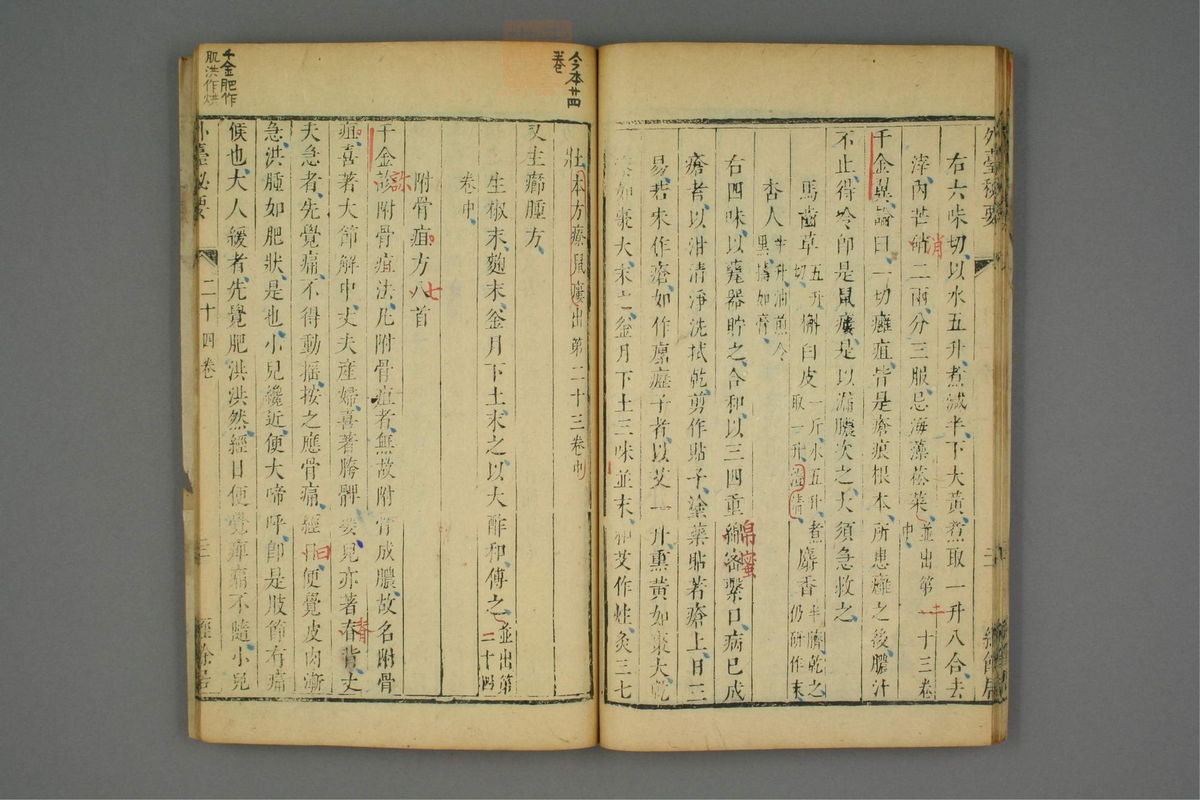 外臺秘要
右六味切以水五升煮減半下大黃煮取一升八合去
滓內芒硝二兩分三服忌海藻菘菜並出第二十三卷中
千金異論曰一切癰疽皆是瘡瘓根本所患癰之後膿汁
不止得冷即是鼠瘻是以漏膿次之大須急救之
馬齒草五升切槲白皮一斤水五升煮取一升澄清麝香半臍乾之仍研作末
杏人半升油煎令黑搗如膏
右四味以瓷器貯之合和以三四重綿密繫口病已成
瘡者以泔清淨洗拭乾剪作貼子塗藥貼若瘡上日三
易若未作瘡如作瘰癧子者以艾一升熏黃如棗大乾
如棗大末之釜月下土三味並末和艾作炷灸三七
壯本方療鼠瘻出第二十三卷中
又生癤腫方
生椒末麴末釜月下土末之以大酢和傅之並出第二十四
卷中
附骨疽方八首
千金診附骨疽法凡附骨疽者無故附骨成膿故名附骨
疽喜著大節解中丈夫產婦喜著䏶髀嬰兒亦著脊背丈
夫急者先覺痛不得動搖按之應骨痛經日便覺皮肉漸
急洪腫如肥狀是也小兒纔近便大啼呼即是肢節有痛
候也大人緩者先覺肥洪洪然經日便覺痺痛不隨小兒
二十四卷
今本廿四
卷
千金肥作
肌洪作烘